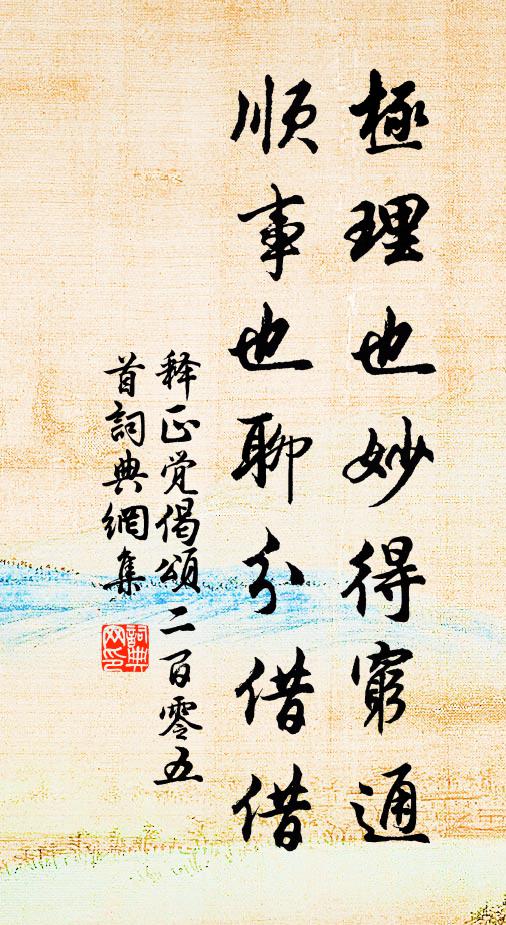 極理也妙得窮通
順事也聊分借借
释正觉偈頌二百零五
首詞典網集
詞典
网印